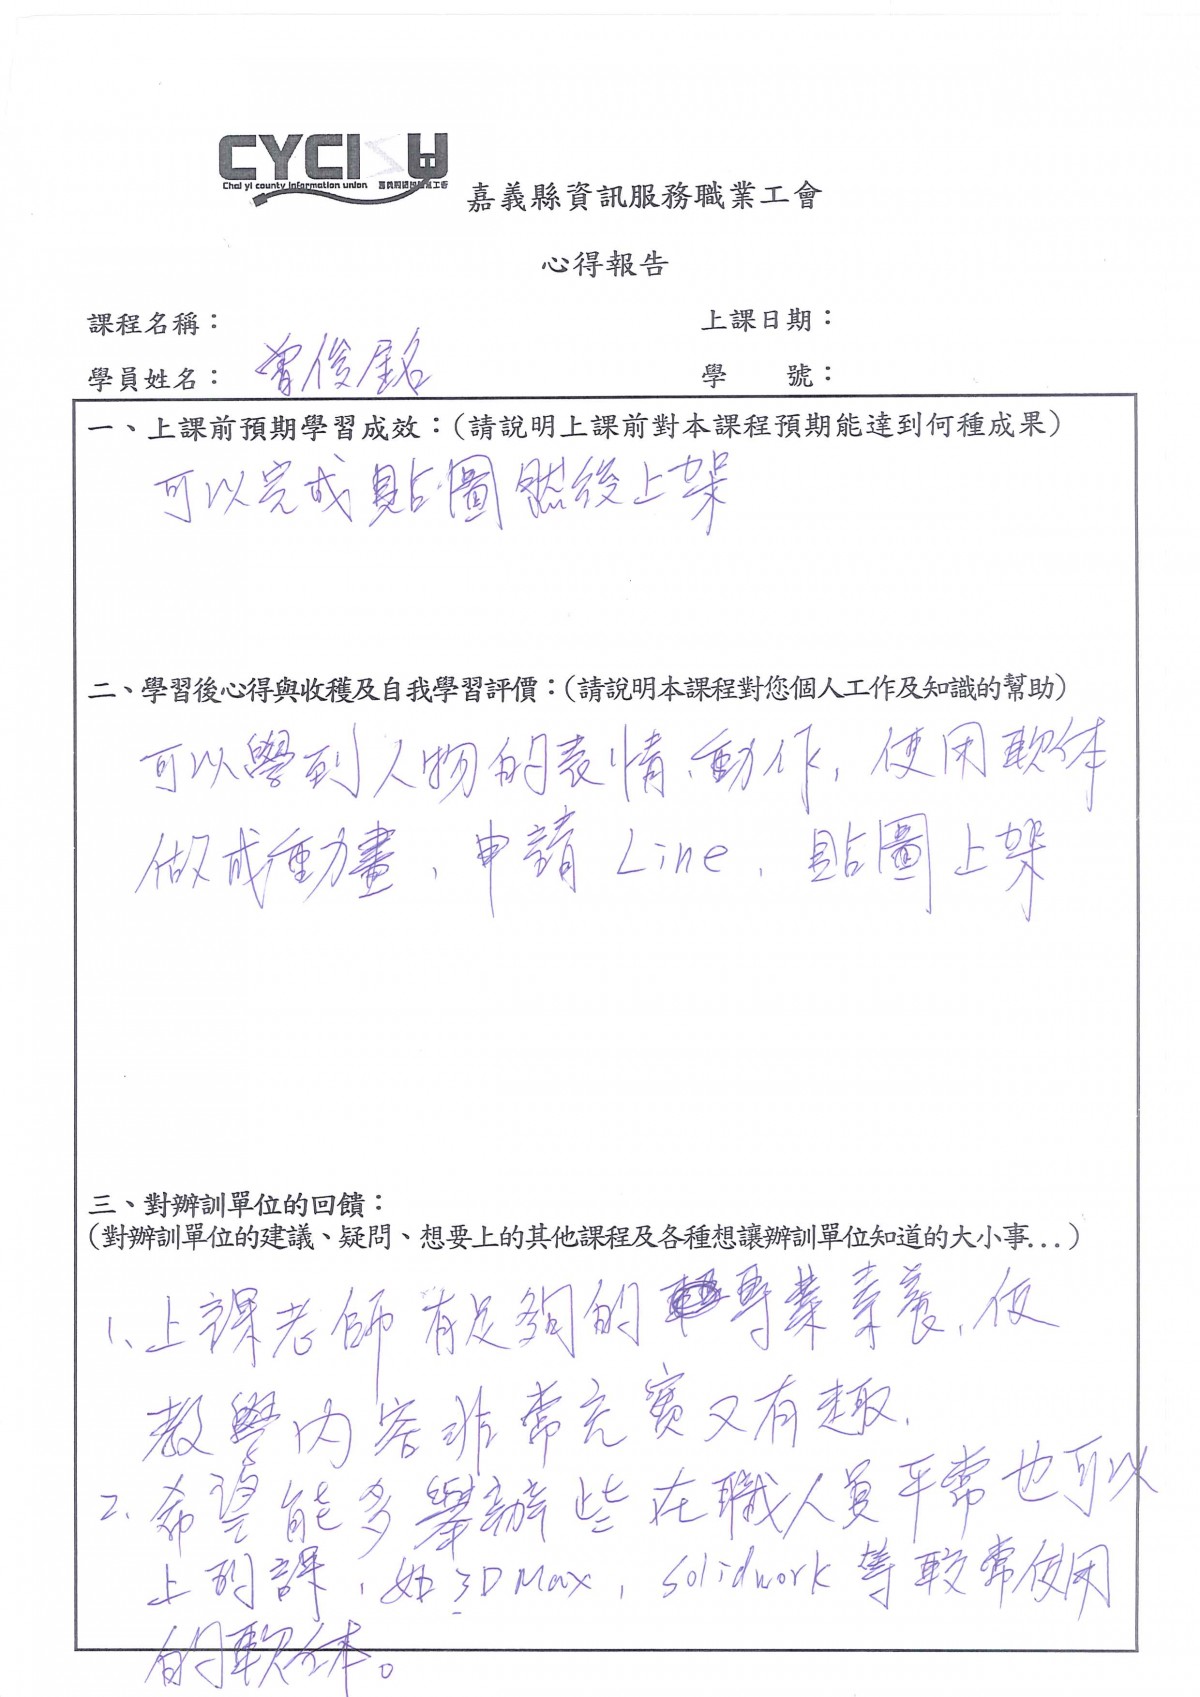 CYCISU
Chai yi county information union 嘉義縣資訊服務職業工會
嘉義縣資訊服務職業工會
心得報告
課程名稱： 上課日期：
學員姓名： 曾俊銘 學 號：
一、上課前預期學習成效：(請說明上課前對本課程預期能達到何種成果)
可以完成貼圖然後上架
二、學習後心得與收穫及自我學習評價：(請說明本課程對您個人工作及知識的幫助)
可以學到人物的表情、動作，使用軟体
做成動畫，申請Line，貼圖上架
三、對辦訓單位的回饋：
(對辦訓單位的建議、疑問、想要上的其他課程及各種想讓辦訓單位知道的大小事...)
1、上課老師有足夠的專業素養，使
教學內容非常充實又有趣.
2、希望能多舉辦些在職人員平常也可以
上到課，如3D Max，Solidwork等較常使用
的軟体。